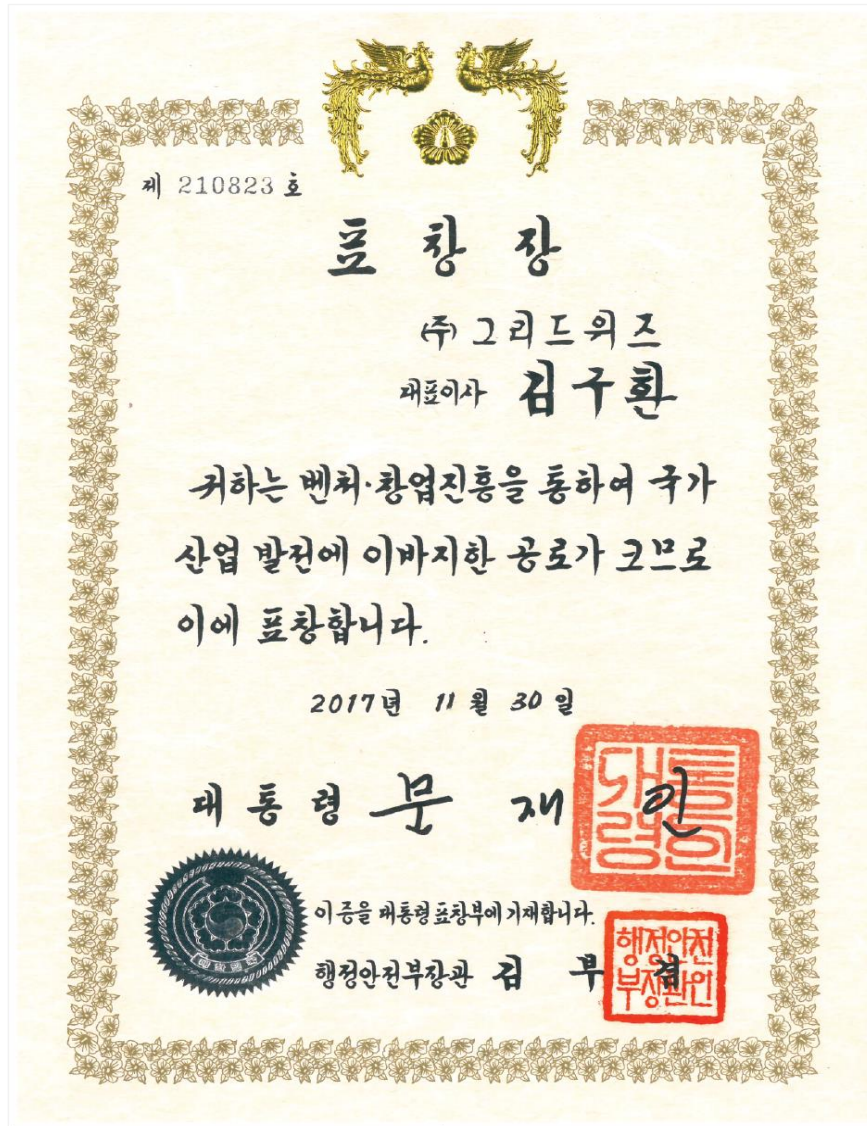 제 210823 호
표 창 장
(주) 그리드위즈
대표이사 김구환
귀하는 벤처·창업진흥을 통하여 국가
산업 발전에 이바지한 공로가 크므로
이에 표창합니다.
2017년 11월 30일
대통령 문재인
대통령의인
이 증을 대통령표창부에 기재합니다.
행정안전부장관 김부겸
행정안전부장관인